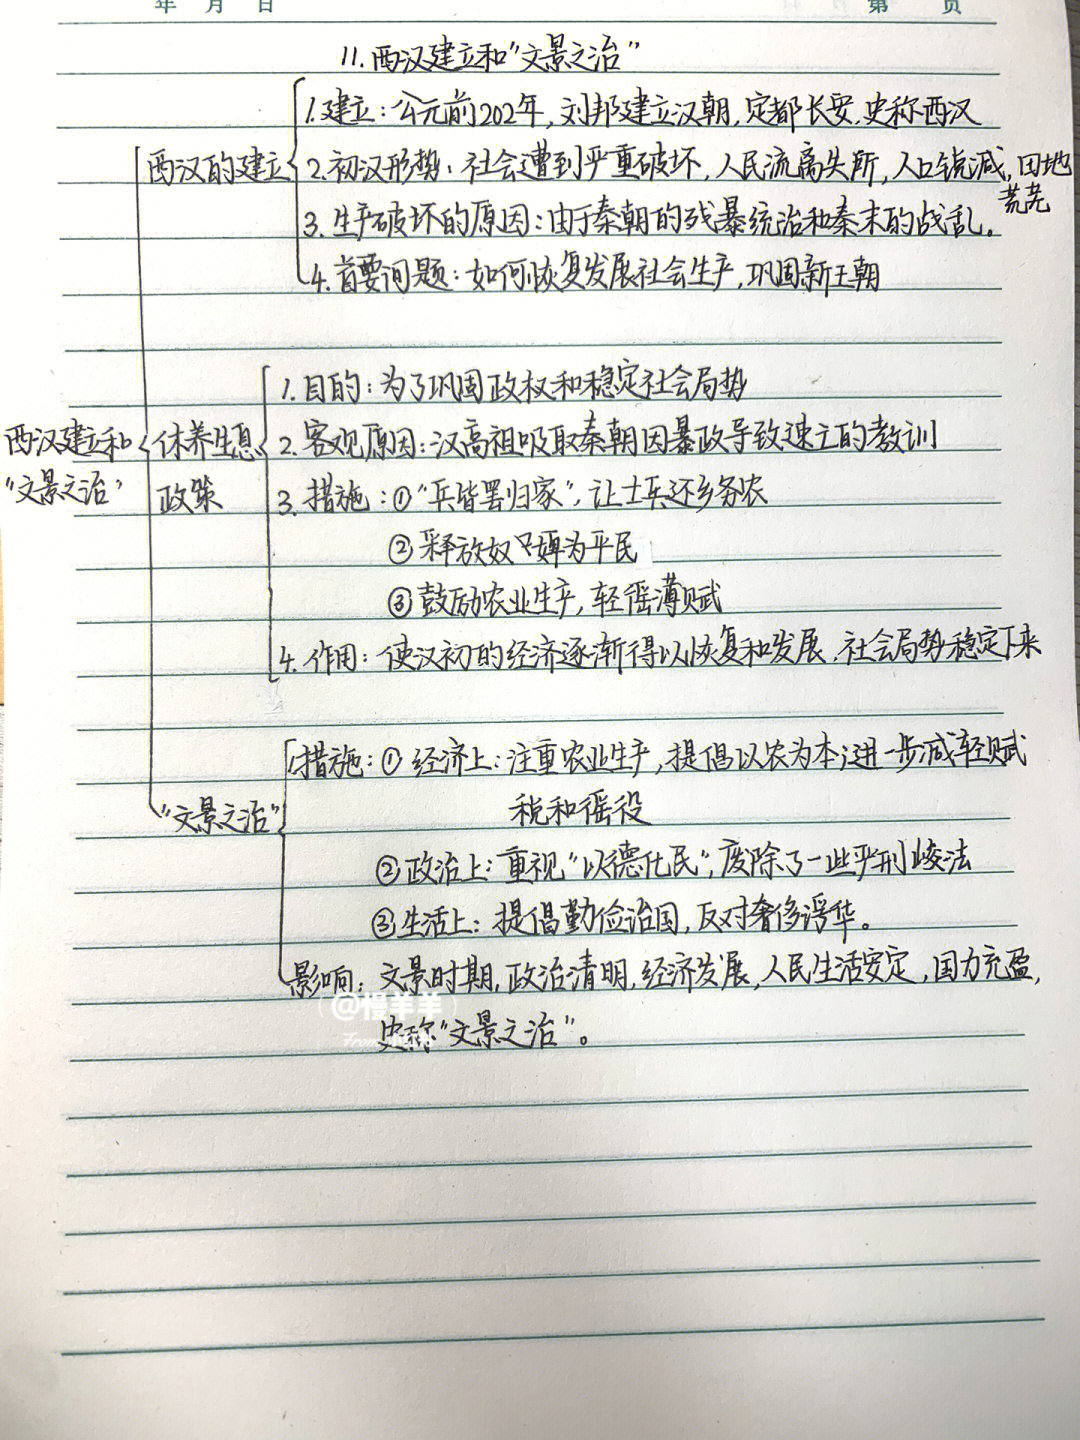 年 月 日 第 页
11.西汉建立和"文景之治"
1.建立:公元前202年,刘邦建立汉朝,定都长安,史称西汉
西汉的建立
2.初汉形势:社会遭到严重破坏,人民流离失所,人口锐减,田地
荒芜
3.生产破坏的原因:由于秦朝的残暴统治和秦末的战乱。
4.首要问题:如何恢复发展社会生产,巩固新王朝
1.目的:为了巩固政权和稳定社会局势
西汉建立和
"文景之治"
休养生息
政策
2.客观原因:汉高祖吸取秦朝因暴政导致速亡的教训
3.措施:①"兵皆罢归家",让士兵还乡务农
②释放奴婢为平民
③鼓励农业生产,轻徭薄赋
4.作用:使汉初的经济逐渐得以恢复和发展,社会局势稳定下来
"文景之治"
措施:①经济上:注重农业生产,提倡以农为本;进一步减轻赋
税和徭役
②政治上:重视"以德化民",废除了一些严刑峻法
③生活上:提倡勤俭治国,反对奢侈浮华。
影响:文景时期,政治清明,经济发展,人民生活安定,国力充盈,
史称"文景之治"。
@慢羊羊